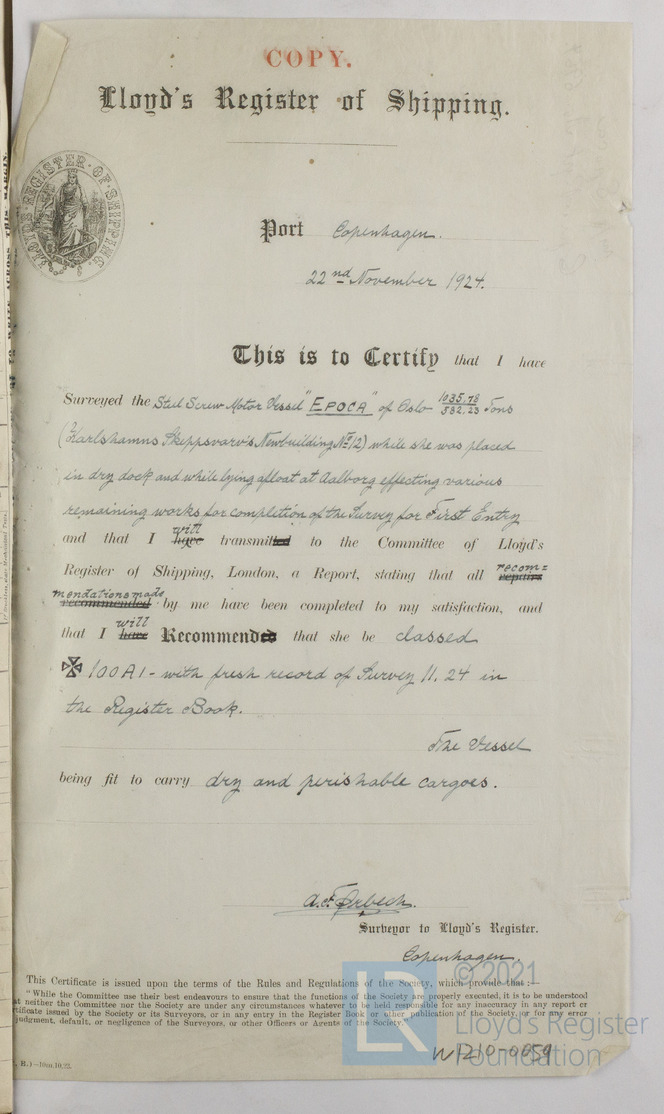 COPY.
Lloyd's Register of Shipping.
LLOYD'S REGISTER OF SHIPPING
Port Copenhagen.
22nd November 1924.
This is to Certify that I have
Surveyed the Steel Screw Motor Vessel "EPOCA" of Oslo 1035,78 / 582,23 Tons
(Karlshamns Skeppsvarv's Newbuilding No 12) while she was placed
in dry dock and while lying afloat at Aalborg effecting various
remaining works for completion of the Survey for First Entry
will
and that I have transmitted to the Committee of Lloyd's
Register of Shipping, London, a Report, stating that all repairs recom=
mendations made
recommended by me have been completed to my satisfaction, and
will
that I have Recommended that she be classed
✠ 100A1 - with fresh record of Survey 11.24 in
the Register Book.
The Vessel
being fit to carry dry and perishable cargoes.
Surveyor to Lloyd's Register.
Copenhagen.
This Certificate is issued upon the terms of the Rules and Regulations of the Society, which provide that :—
"While the Committee use their best endeavours to ensure that the functions of the Society are properly executed, it is to be understood
at neither the Committee nor the Society are under any circumstances whatever to be held responsible for any inaccuracy in any report or
rtificate issued by the Society or its Surveyors, or in any entry in the Register Book or other publication of the Society, or for any error
judgment, default, or negligence of the Surveyors, or other Officers or Agents of the Society."
R.)—10m.10.22.
LR
© 2021
Lloyd's Register
Foundation
W1210-0059